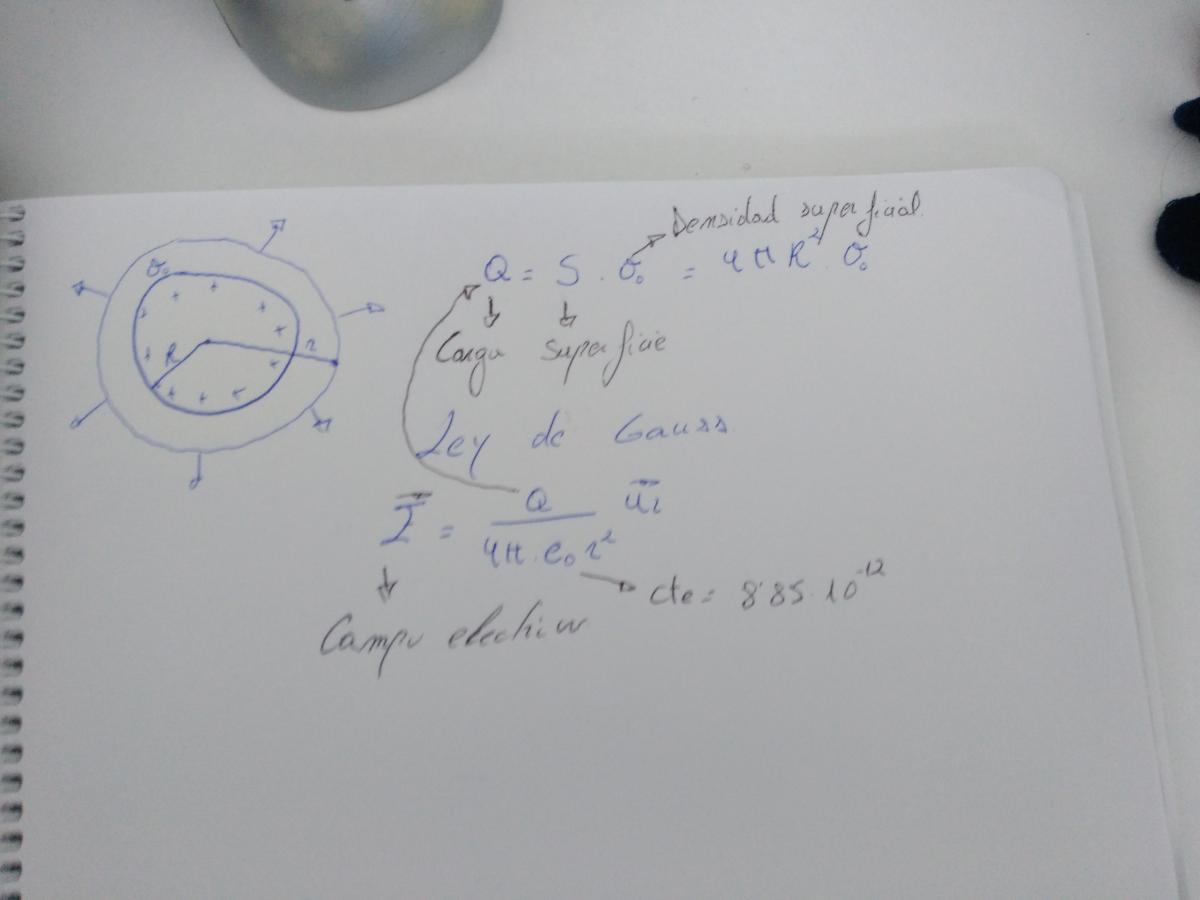 Densidad superficial.
Q = S · σ₀ = 4πR² · σ₀
Carga superficie
σ₀
R
r
Ley de Gauss
E = Q / 4π · e₀ r² ur
cte = 8'85 · 10⁻¹²
Campo electrico